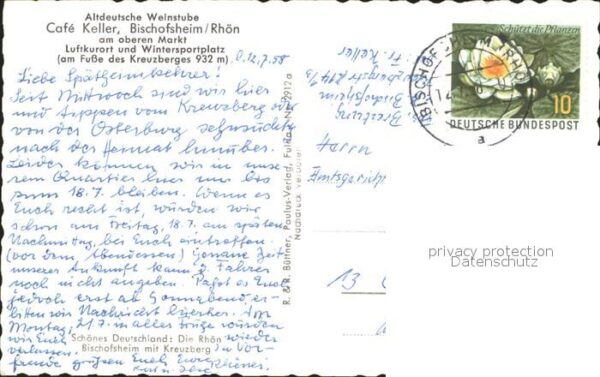 Altdeutsche Weinstube
Café Keller, Bischofsheim/Rhön
am oberen Markt
Luftkurort und Wintersportplatz
(am Fuße des Kreuzberges 932 m)
12.7.58
Liebe Spätheimkehrer!
Seit Mittwoch sind wir hier
und tippen vom Kreuzberg oder
von der Osterburg sehnsüchtig
nach der Heimat hinüber.
Leider können wir in unse-
rem Quartier hier nur bis
zum 18.7. bleiben. Wenn es
Euch recht ist, würden wir
schon am Freitag, 18.7. am späten
Nachmittag, bei Euch eintreffen.
(vor dem Abendessen) Genaue Zeit
unserer Ankunft kann d. Fahrer
noch nicht angeben. Paßt es Euch
jedoch erst ab Sonnabend, er-
bitten wir Nachricht hierher. Am
Montag, 21.7. in aller Frühe würden
wir Euch wieder
verlassen. In Vor-
freude grüßen Euch Eure
Schönes Deutschland: Die Rhön
Bischofsheim mit Kreuzberg
R. & R. Büttner, Paulus-Verlag, Fulda Nr. 2912a
Nachdruck verboten
Fr. Keller
Bischofsheim
Herrn
Amtsgericht
13
BISCHOFSHEIM RHÖN
a
Schützt die Pflanzen
10
DEUTSCHE BUNDESPOST
privacy protection
Datenschutz